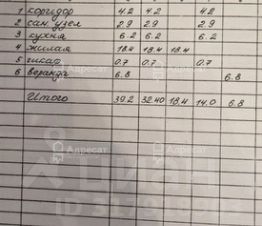 1 коридор 4.2 4.2 4.2
2 сан. узел 2.9 2.9 2.9
3 кухня 6.2 6.2 6.2
4 жилая 18.4 18.4 18.4
5 шкаф 0.7 0.7 0.7
6 веранда 6.8 6.8
Итого 39.2 32.40 18.4 14.0 6.8
Адресат
Адресат
Адресат
Адресат
ЦИАН